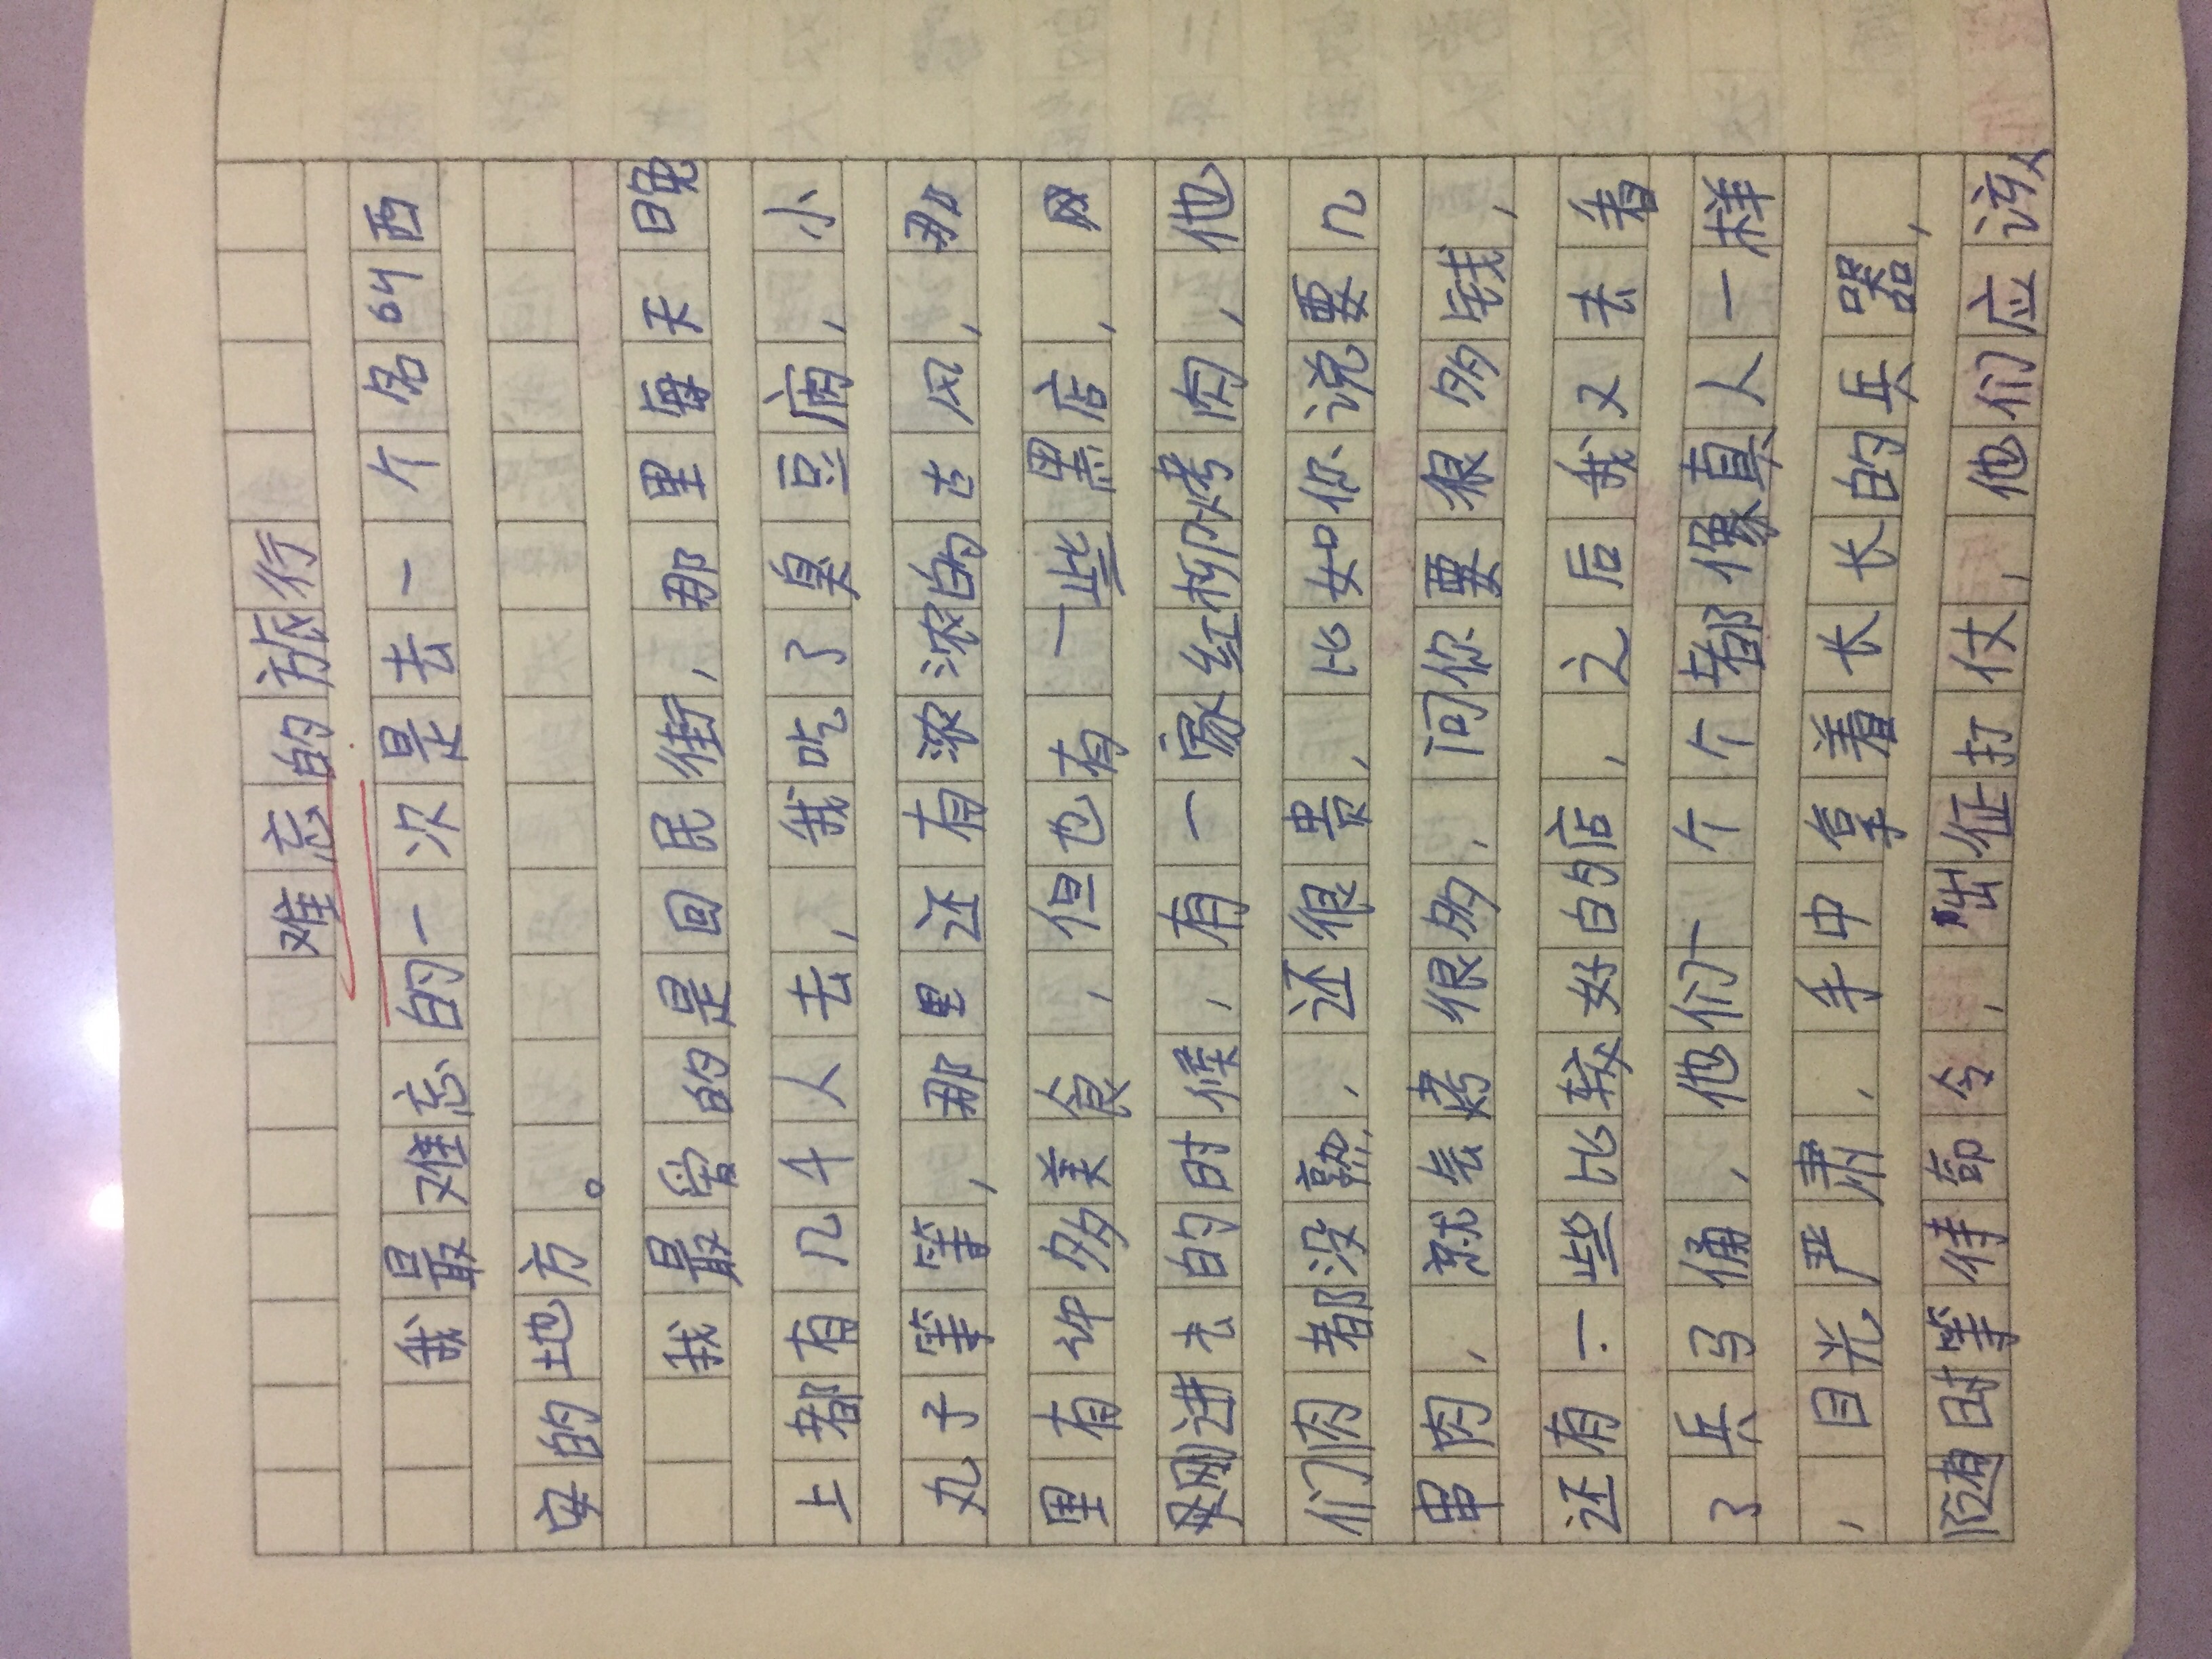 难忘的旅行
我最难忘的一次是去一个名叫西
安的地方。
我最爱的是回民街,那里每天晚
上都有几千人去,我吃了臭豆腐,小
丸子等等,那里还有浓浓的古风,那
里有许多美食,但也有一些黑店,
刚进去的时候,有一家红柳烤肉,他
们肉都没熟,还很贵,比如你说要几
串肉,就会烤很多,问你要很多钱,
还有一些比较好的店,之后我又去看
了兵马俑,他们个个都像真人一样
,目光严肃,手中拿着长长的兵器,
随时等待命令,出征打仗,他们应该